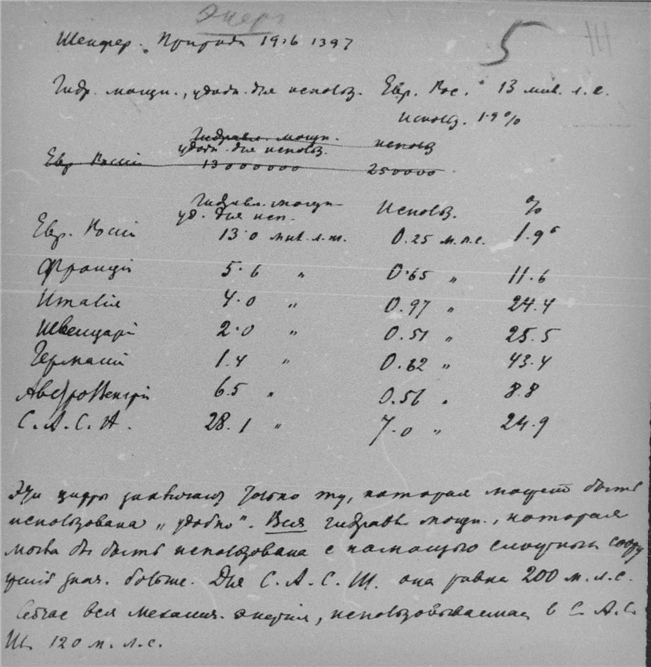 Энерг
5
Шенфер. Природа 1916 1397
Гидр. мощн., удобн. для использ. Евр. Рос. 13 мил. л. с.
использ. 1.9%
Гидравл. мощн. использ
удобн. для использ.
Евр Россия 13000000 250000
Гидравл. мощн Использ. %
уд. для исп.
Евр. Россия 13.0 мил. л. с. 0.25 м. л. с. 1.9
Франция 5.6 " 0.65 " 11.6
Италия 4.0 " 0.97 " 24.4
Швейцария 2.0 " 0.51 " 25.5
Германия 1.4 " 0.62 " 43.4
АвстроВенгрия 6.5 " 0.56 " 8.8
С. А. С. Ш. 28.1 " 7.0 " 24.9
Эти цифры только ту, которая может быть
использована „удобно". Вся гидравл мощн., которая
могла бы быть использована с помощью сложных соору
жений знач. больше. Для С. А. С. Ш. она равна 200 м. л. с.
Сейчас вся механич. энергия, использовываемая в С. А. С.
Ш. 120 м. л. с.